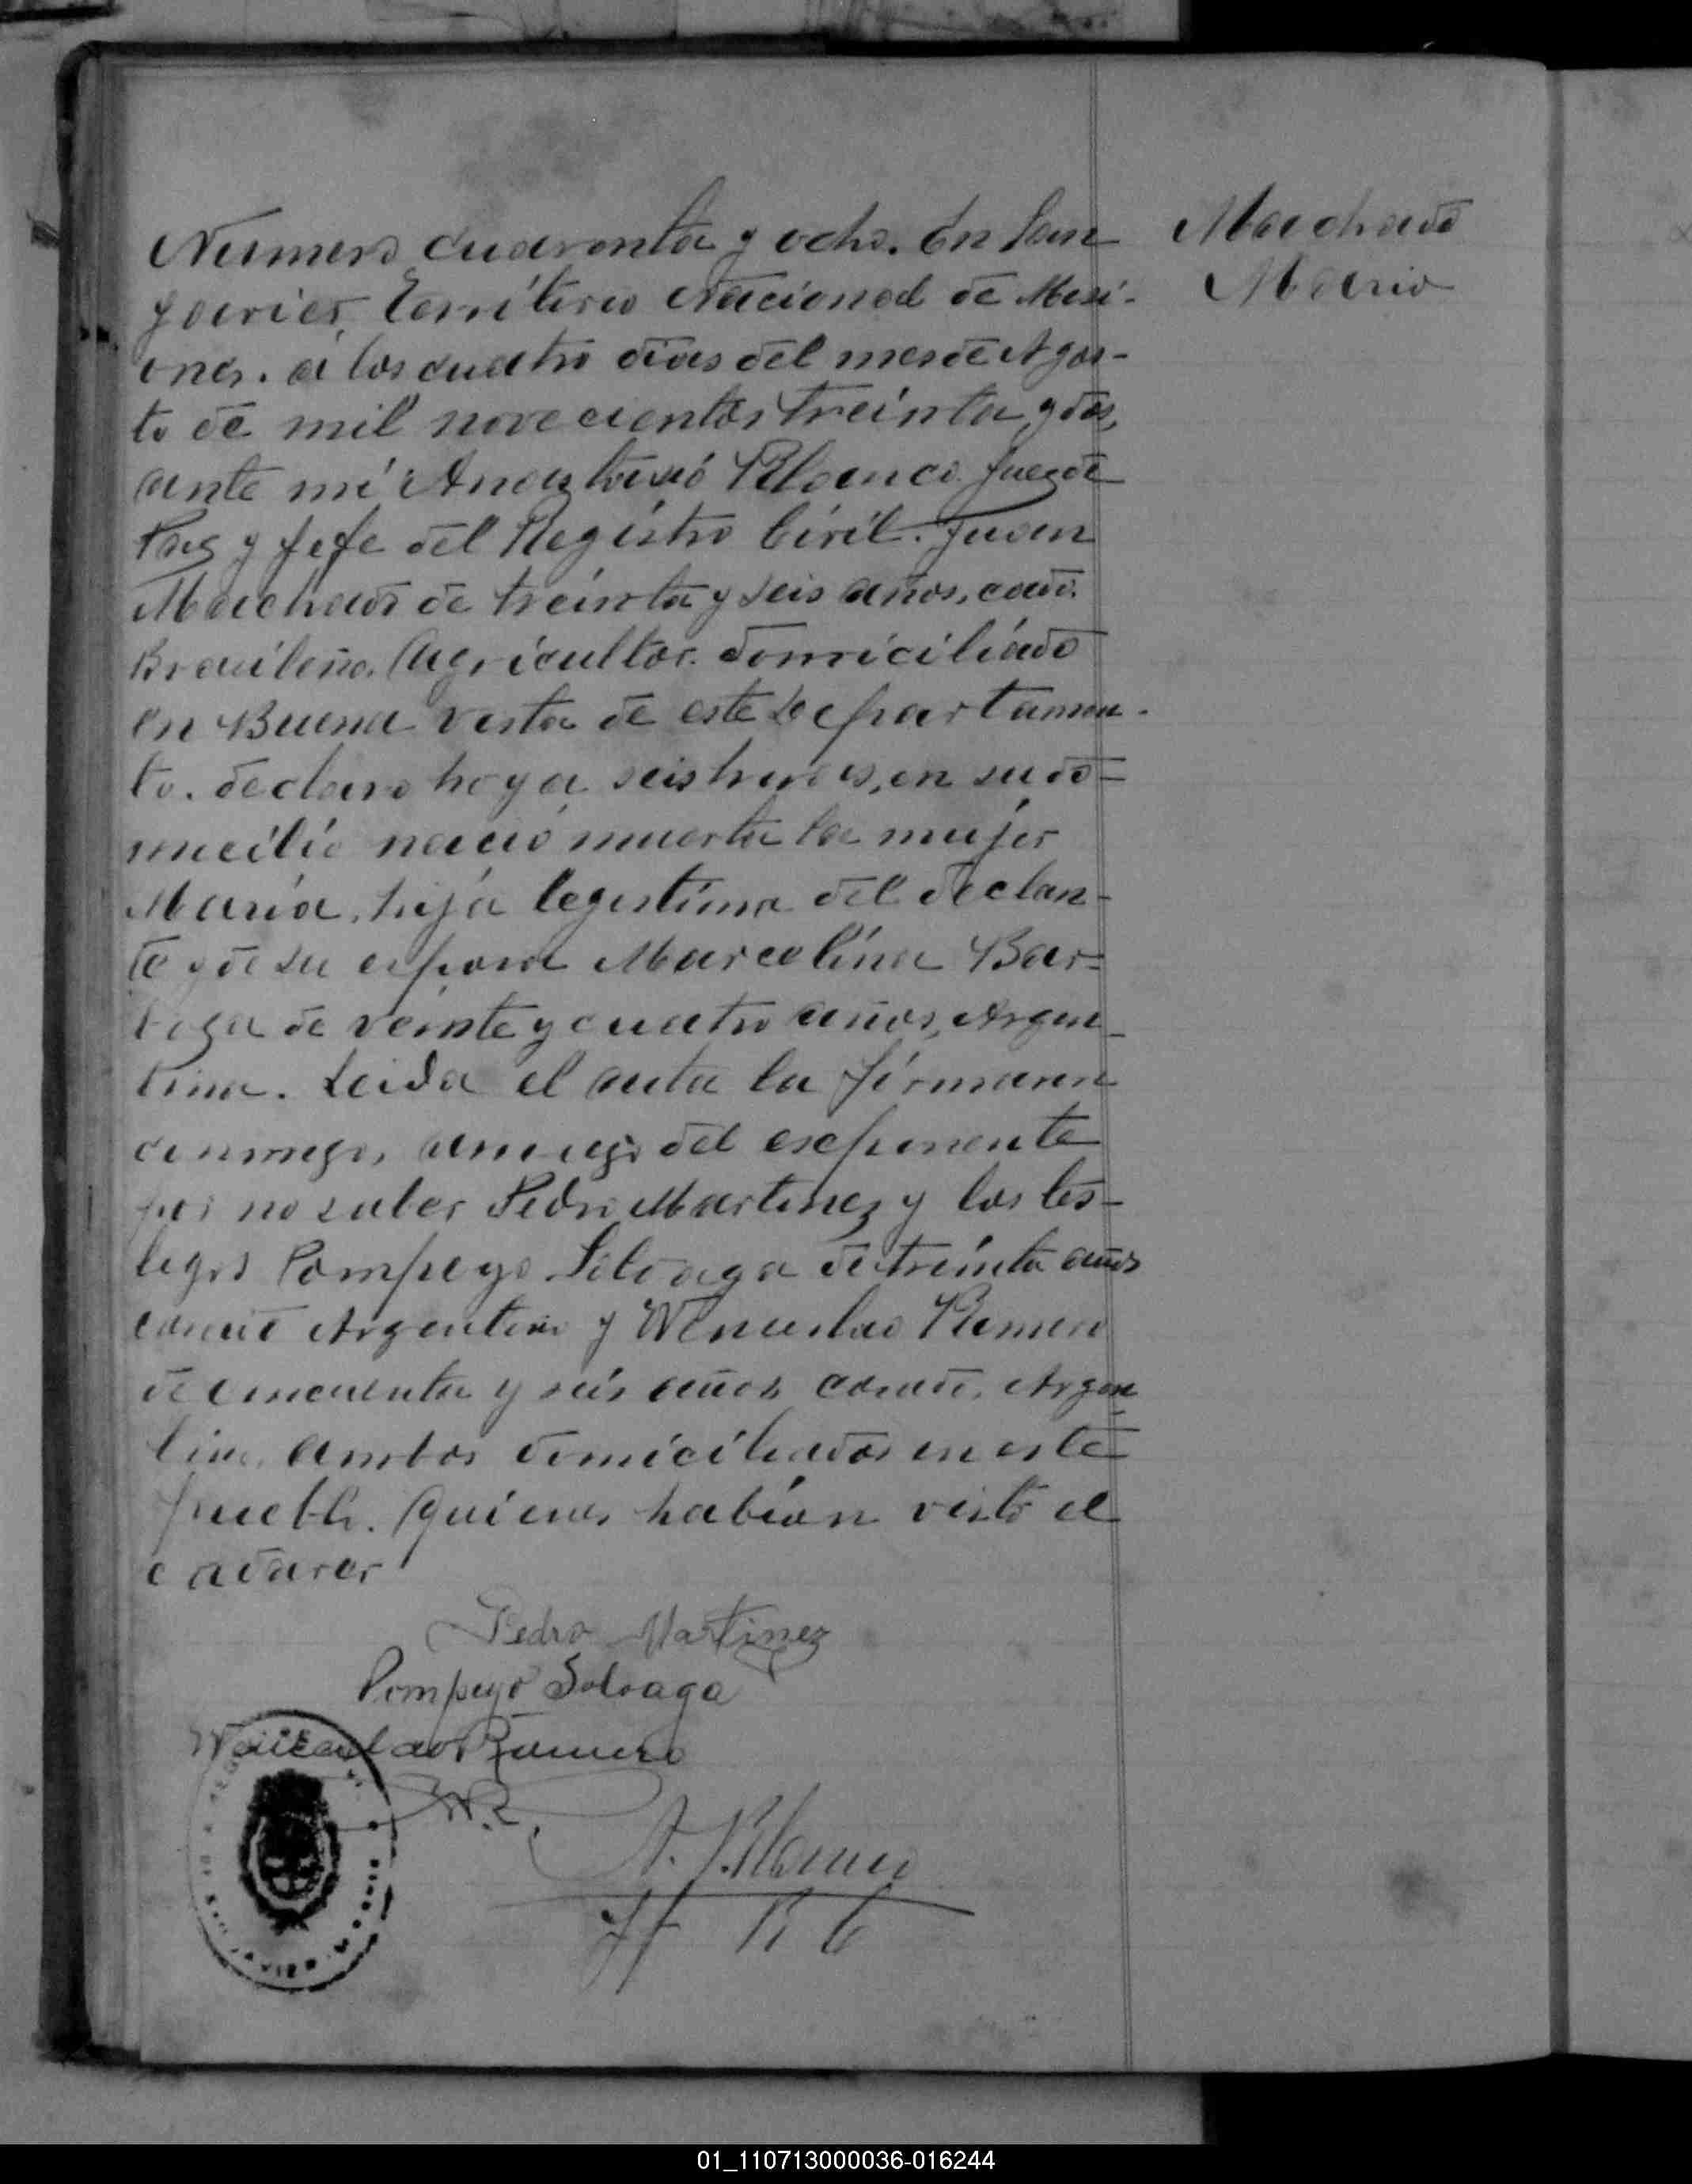 Numero cuarenta y ocho. En San
Javier, Territorio Nacional de Misi-
ones. a los cuatro dias del mes de Agos-
to de mil novecientos treinta y dos,
ante mi Anastasio Blanco Juez de
Paz y Jefe del Registro Civil. Juan
Machado de treinta y seis años, casado.
Brasileño. Agricultor. domiciliado
en Buena vista de este Departamen-
to. declaro hoy a seis horas, en su do=
micilio nació muerta la mujer
María, hija legitima del declan-
te y de su esposa Marcelina Bar=
boza de veinte y cuatro años, Argen-
tina. Leida el acta la firmaron
conmigo, a ruego del exponente
por no saber Pedro Martinez y los tes-
tigos Pompeyo Soloaga de treinta años
casado Argentino y Wenceslao Romero
de cincuenta y seis años casado. Argen
tino. ambos domiciliados en este
pueblo. Quienes habían visto el
cadaver
Machado
Maria
Pedro Martinez
Pompeyo Soloaga
Wenceslao Romero
W.R.
A. Blanco
Jf R C
01_110713000036-016244